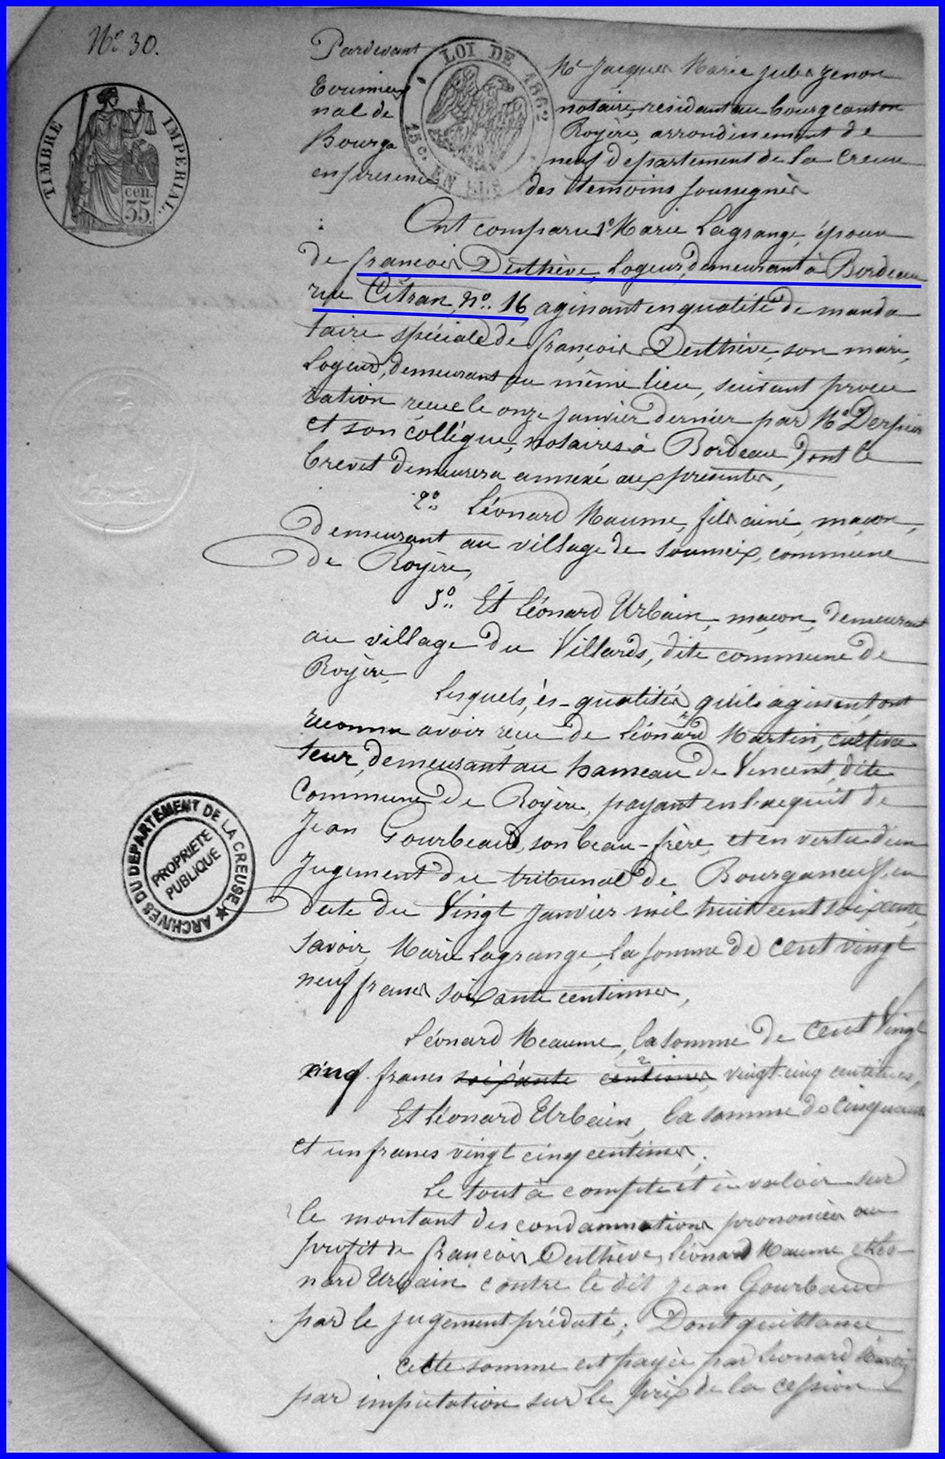 N° 30.
TIMBRE IMPERIAL.
35 cen.
LOI DE 1862
15 c. EN SUS
Pardevant Me Jacques Marie Jules Zenon
notaire, résidant au bourg canton
nal de Royère, arrondissement de
Bourga neuf département de la Creuse
en présence des témoins soussignés
Ont comparu 1° Marie Lagrange, épouse
de françois Desthève, Logeur, demeurant à Bordeau
rue Citran, n°. 16, agissant en qualité de manda
taire spéciale de françois Desthève, son mari,
Logeur, demeurant au même lieu, suivant procu
ration reçue le onze janvier dernier par Me
et son collègue, notaires à Bordeau, dont le
brevet demeurera annexé aux présentes,
2°. Léonard Naume, fils ainé, maçon,
demeurant au village de Soumeix, commune
de Royère,
3°. Et Léonard Urbain, maçon, demeurant
au village du Villards, dite commune de
Royère
Lesquels, ès-qualités qu'ils agissent, ont
reconnu avoir reçu de Léonard Martin, cultiva
teur, demeurant au hameau de Vincent, dite
Commune de Royère, payant en l'acquit de
Jean Gourbeaud, son beau-frère, et en vertu d'un
Jugement du tribunal de Bourganeuf, en
date du vingt janvier mil huit cent soixante
savoir, Marie Lagrange, la somme de cent vingt
neuf francs soixante centimes,
Léonard Neaume, la somme de cent vingt
cinq francs soixante centimes, vingt-cinq centimes,
Et Léonard Urbain, la somme de cinquante
et un francs vingt cinq centimes.
Le tout à compte et à valoir sur
le montant des condamnations prononcées au
profit de françois Desthève, Léonard Naume et Léo-
nard Urbain contre le dit Jean Gourbaud
par le jugement prédaté; Dont quittance
cette somme est payée par Léonard Martin
par imputation sur le prix de la cession
ARCHIVES DU DEPARTEMENT DE LA CREUSE
PROPRIETE PUBLIQUE